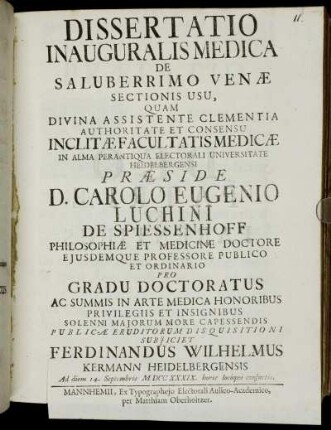 11.
DISSERTATIO
INAUGURALIS MEDICA
DE
SALUBERRIMO VENÆ
SECTIONIS USU,
QUAM
DIVINA ASSISTENTE CLEMENTIA
AUTHORITATE ET CONSENSU
INCLITÆ FACULTATIS MEDICÆ
IN ALMA PERANTIQUA ELECTORALI UNIVERSITATE
HEIDELBERGENSI
PRÆSIDE
D. CAROLO EUGENIO
LUCHINI
DE SPIESSENHOFF
PHILOSOPHIÆ ET MEDICINÆ DOCTORE
EJUSDEMQUE PROFESSORE PUBLICO
ET ORDINARIO
PRO
GRADU DOCTORATUS
AC SUMMIS IN ARTE MEDICA HONORIBUS
PRIVILEGIIS ET INSIGNIBUS
SOLENNI MAJORUM MORE CAPESSENDIS
PUBLICÆ ERUDITORUM DISQUISITIONI
SUBJICIET
FERDINANDUS WILHELMUS
KERMANN HEIDELBERGENSIS
Ad diem 14. Septembris MDCCXXXIX. horis locoque consuetis.
MANNHEMII, Ex Typographejo Electorali Aulico-Academico,
per Matthiam Oberholtzer.